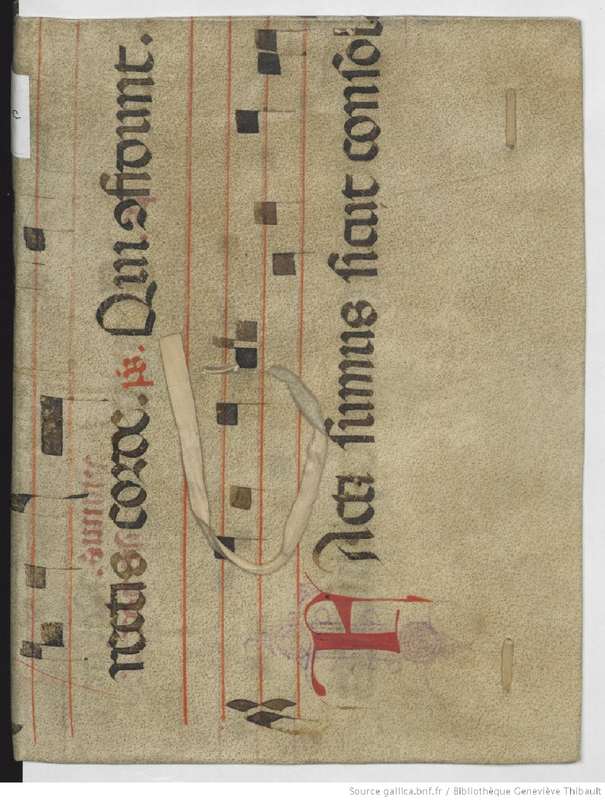 rectis corde. ps. Qui ꝯfidunt.
FActi sumus sicut consol
Source gallica.bnf.fr / Bibliothèque Geneviève Thibault